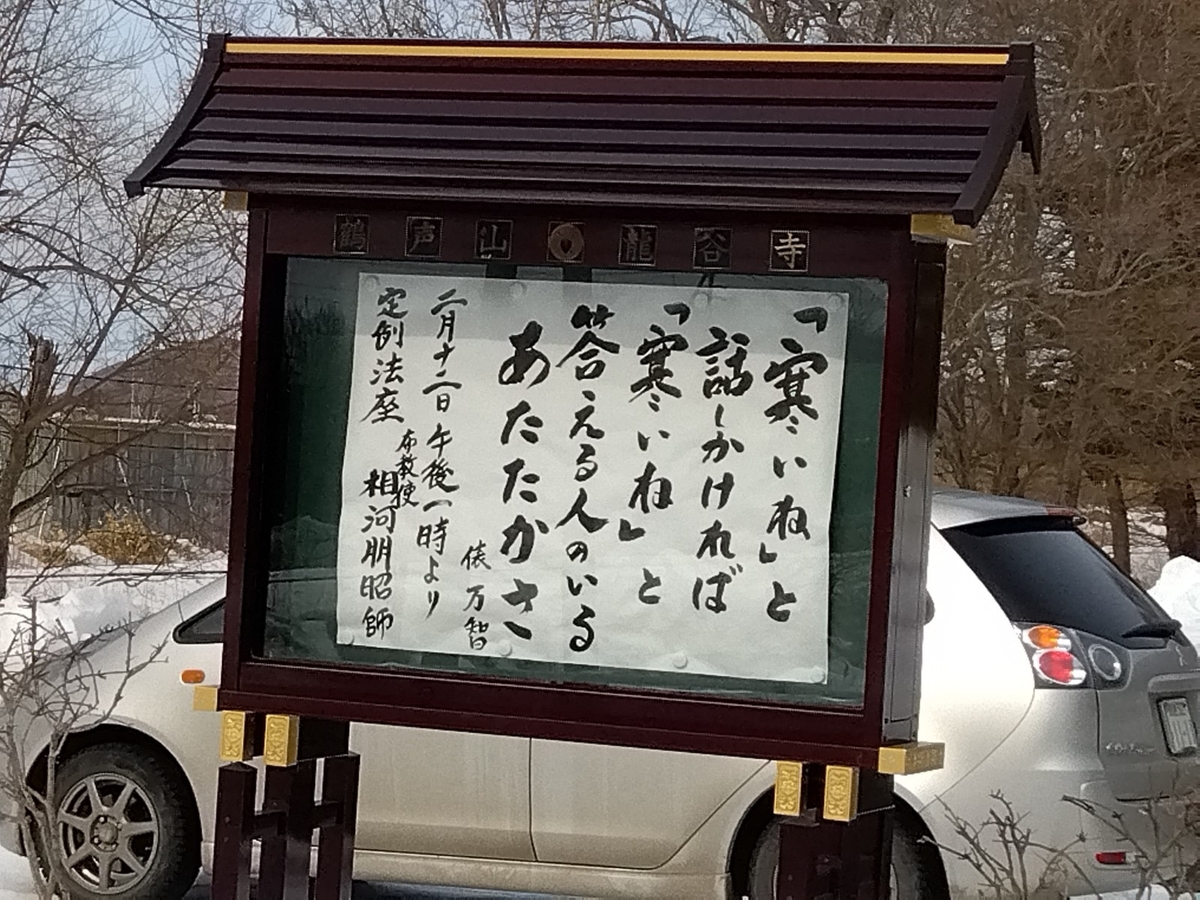 鶴声山 龍谷寺
「寒いね」と
話しかければ
「寒いね」と
答える人のいる
あたたかさ
俵 万智
二月十二日午後一時より
定例法座 布教使 相河朋昭師